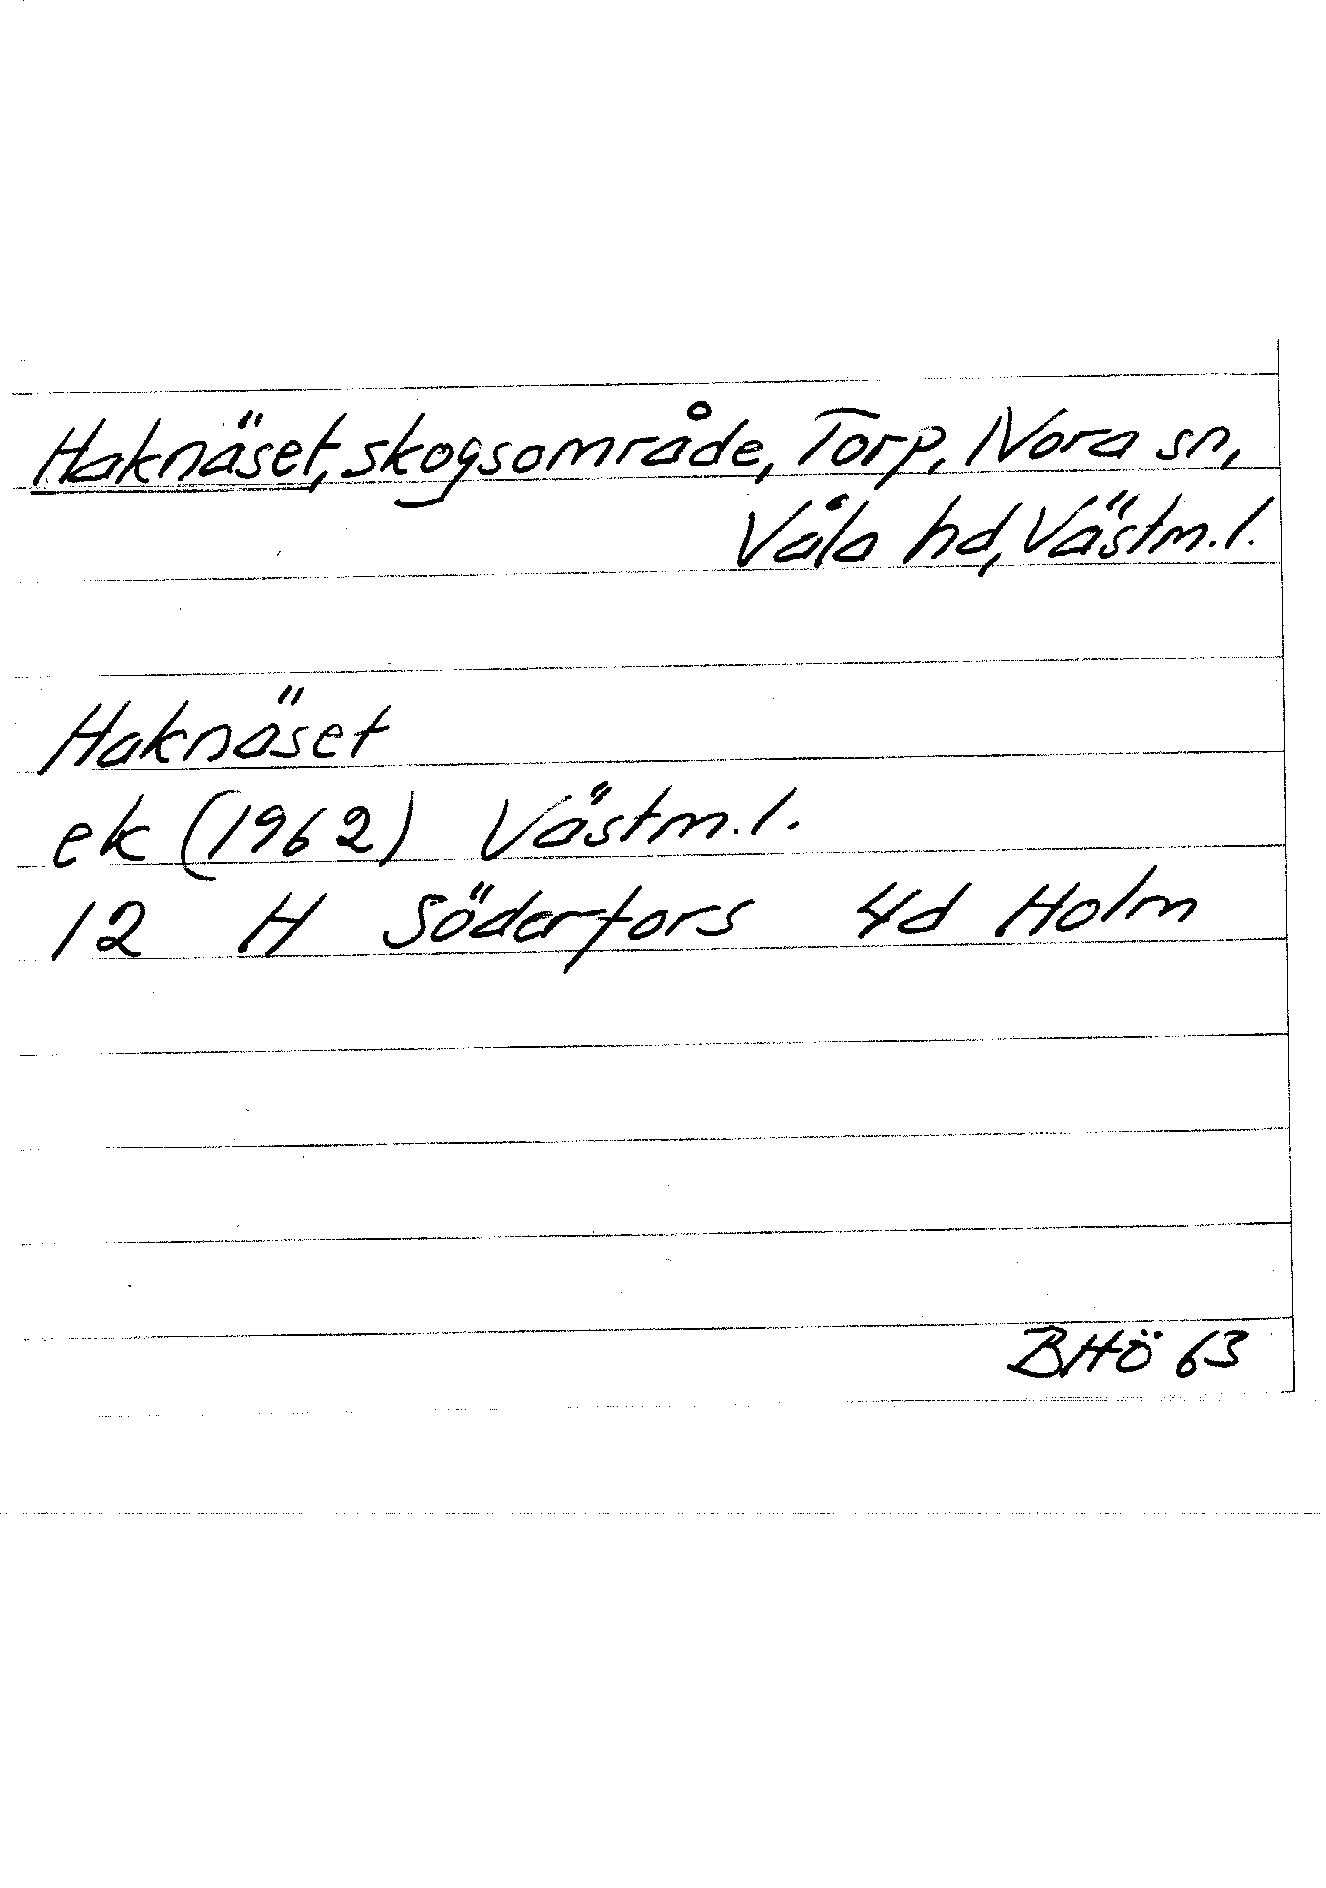 Haknäset, skogsområde, Torp, Nora sn,
Våla hd, Västm.l.
Haknäset
ek (1962) Västm.l.
12 H Söderfors 4d Holm
BHö 63